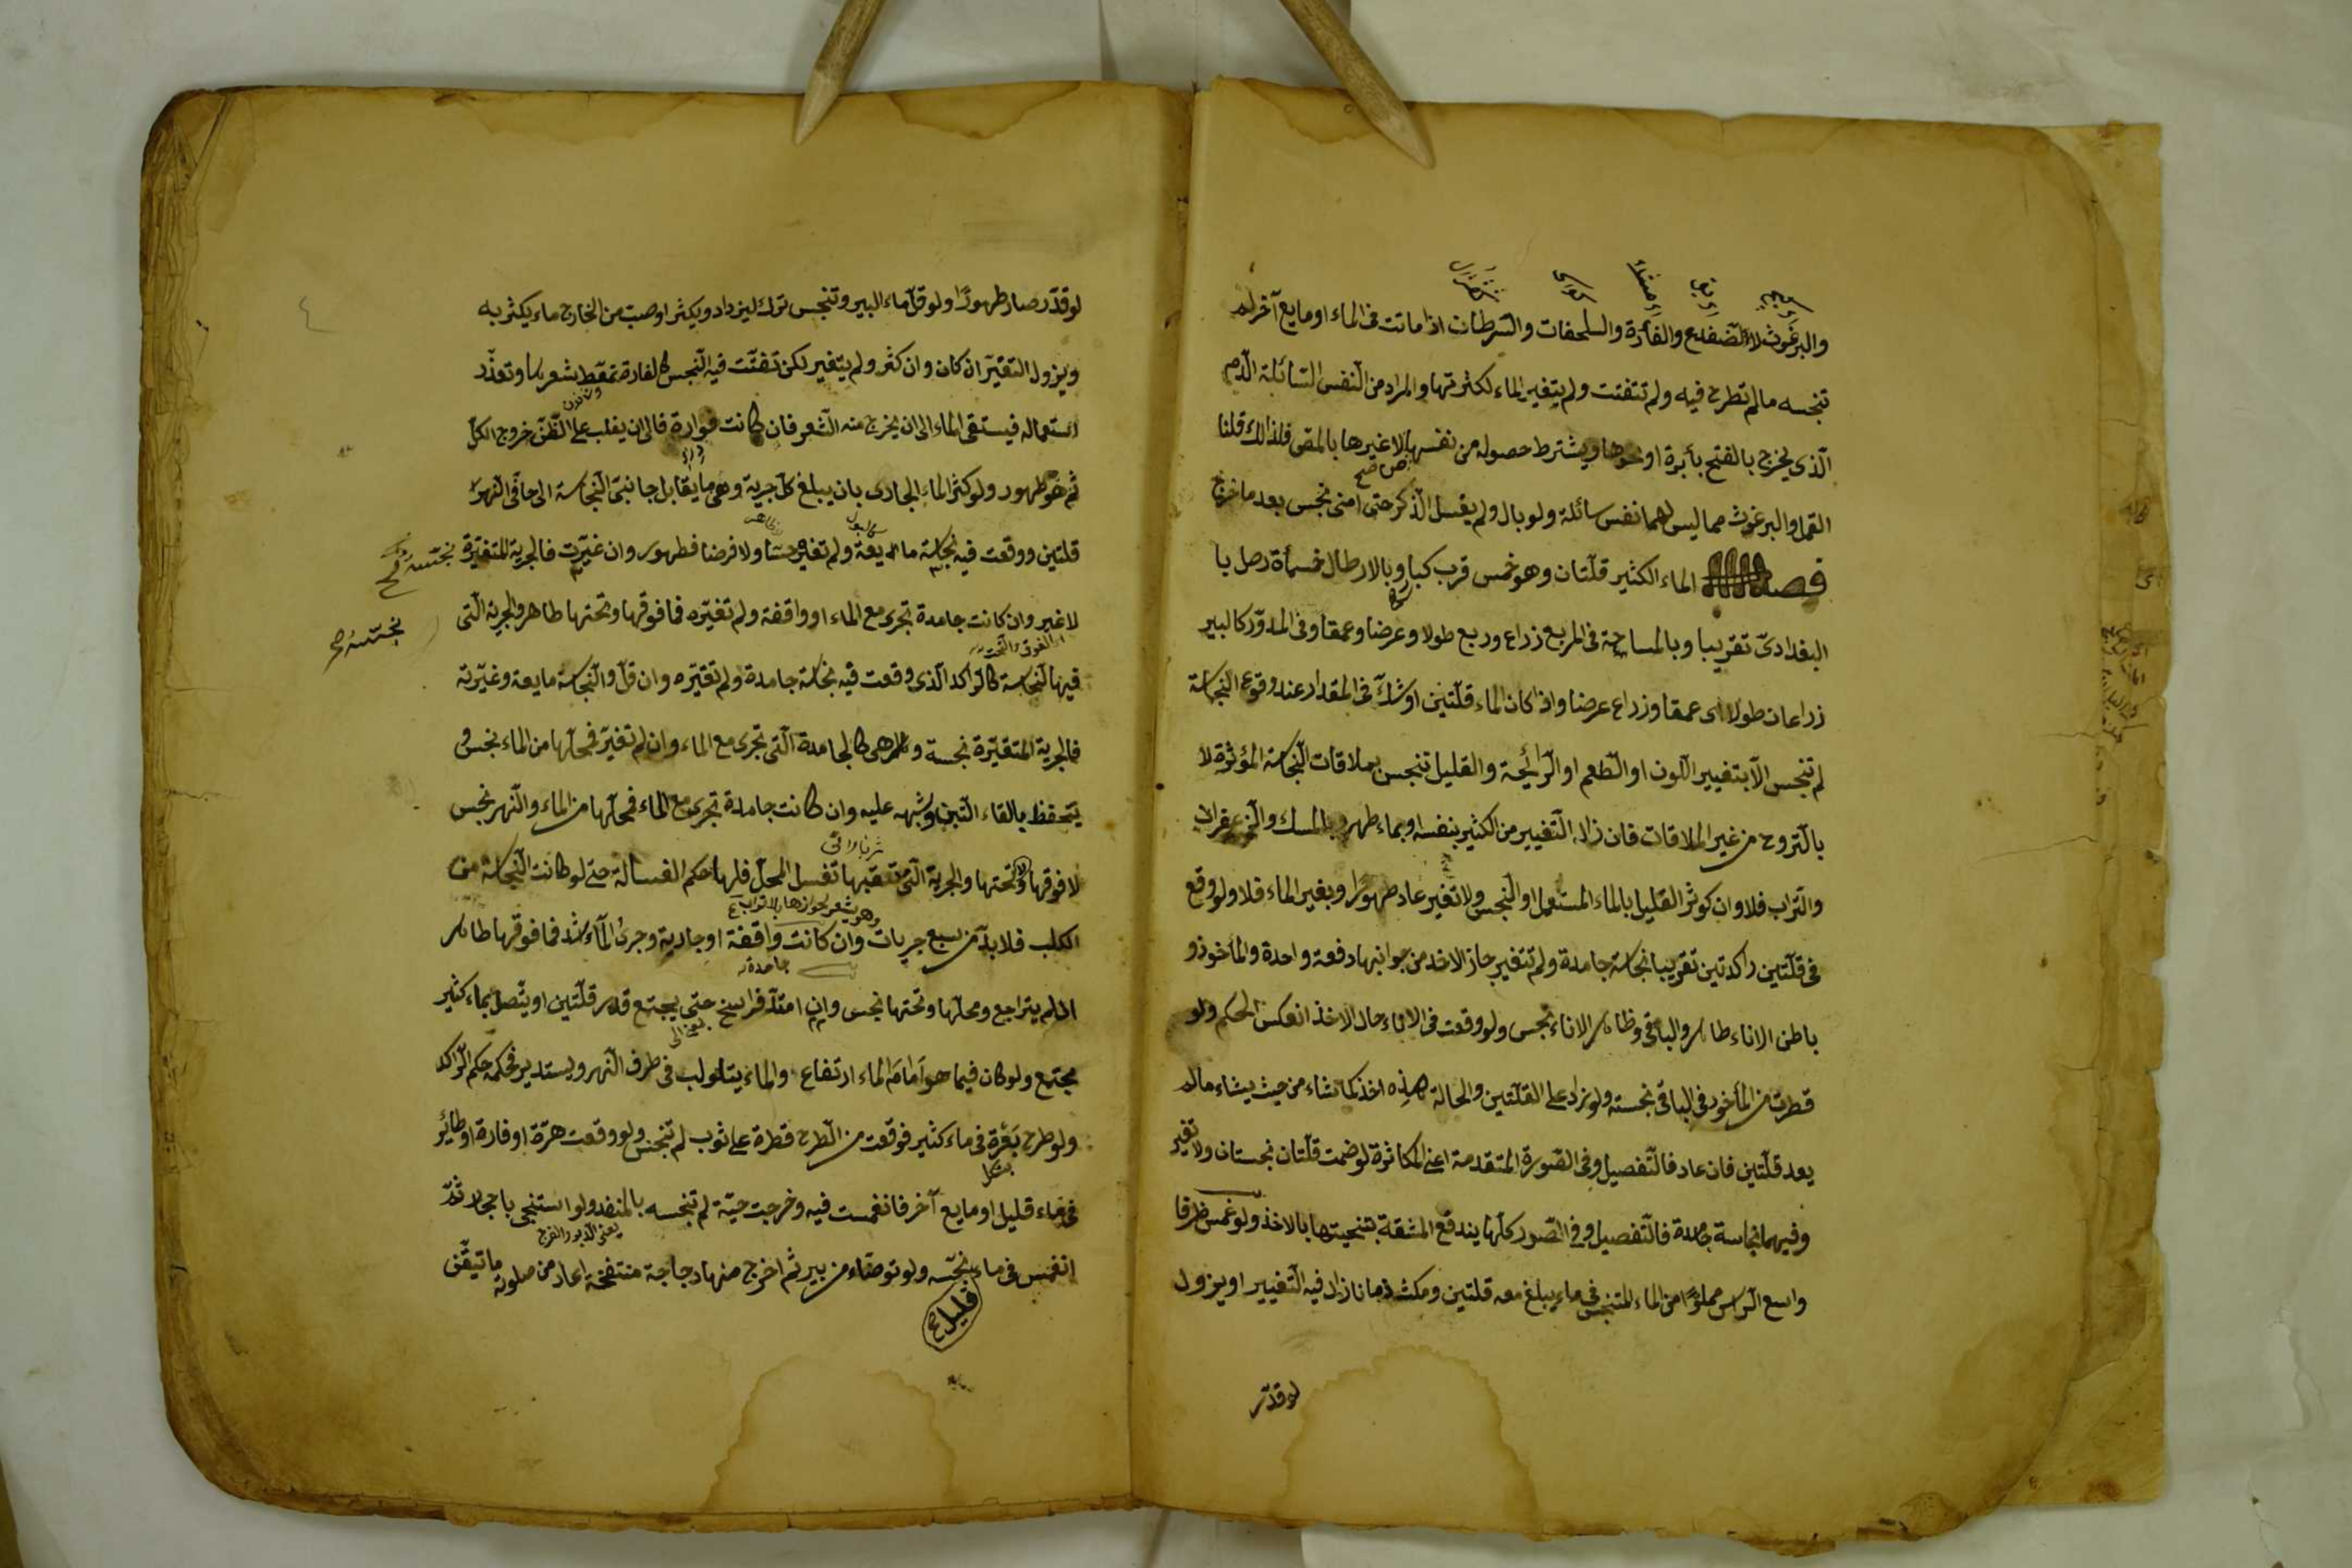 والبرغوث لا الضفدع والفارة والسلحفات والسرطان اذا ماتت فى الماء او مايع آخر لم
تنجسه مالم تطرح فيه ولم تتفتت ولم يتغير الماء لكثرتها والمراد من النفس السائلة الدم
الذى يخرج بالفتح بأبرة او نحوها ويشترط حصوله من نفسها لا غيرها بالمقى فلذالك قلنا
القمل والبرغوث مما ليس لهما نفس سائلة ولو بال ولم يغسل الذكر حتى امنى نجس بعد ما خرج
فصل الماء الكثير قلتان وهو خمس قرب كبار وبالارطال خمسمأة رطل با
البغدادى تقريبا وبالمساحة فى المربع زراع وربع طولا وعرضا وعمقا وفى المدور كالبير
زراعان طولا اى عمقا وزراع عرضا واذا كان الماء قلتين او شك فى المقدار عند وقوع النجاسة
لم تنجس الا بتغيير اللون او الطعم او الرائحة والقليل تنجس بملاقات النجاسة المؤثرة لا
بالتروح من غير الملاقات فان زال التغيير من الكثير بنفسه او بماء طهر وبالمسك والزعفران
والتراب فلا وان كوثر القليل بالماء المستعمل او النجس ولا تغير عاد طهورا وبغير الماء فلا ولو وقع
فى قلتين راكدتين تقريبا نجاسة جامدة ولم تتغير جاز الاخذ من جوانبها دفعة واحدة والمأخوذ و
باطن الاناء طاهر والباقى وظاهر الاناء نجس ولو وقعت فى الاناء حال الاخذ انعكس الحكم ولو
قطرت من المأخوذ فى الباقى نجسته ولو زاد على القلتين والحالة هذه اخذ كما شاء من حيث يشاء مالم
يعد قلتين فان عاد فالتفصيل وفى الصورة المتقدمة اعنى المكاثرة لو ضمت قلتان نجستان ولا تغير
وفيهما نجاسة جامدة فالتفصيل وفى الصور كلها يندفع المشقة بتنحيتها بالاخذ ولو غمس ظرفا
واسع الراس مملوا من الماء المتنجس فى ماء يبلغ معه قلتين ومكث زمانا زال فيه التغيير او يزول
لو قدر
لو قدر صار طهورا ولو قل ماء البير وتنجس ترك ليزداد ويكثر او صب من الخارج ماء يكثر به
ويزول التغير ان كان وان كثر ولم يتغير لكن تفتت فيه النجس كالفارة تمعط شعرها وتعذر
استعماله فيستقى الماء الى ان يخرج منه الشعر فان كانت فوارة فالى ان يغلب على الظن خروج الكل
ثم هو طهور ولو كثر الماء الجارى بان يبلغ كل جرية وهى ما يقابل جانبى النجاسة الى حافى النهر
قلتين ووقعت فيه نجاسة مايعة ولم تغيره حسا ولا فرضا فطهور وان غيرت فالجرية المتغيرة نجسة
لا غير وان كانت جامدة تجرى مع الماء او واقفة ولم تغيره فما فوقها وتحتها طاهر والجرية التى
فيها النجاسة كالراكد الذى وقعت فيه نجاسة جامدة ولم تغيره وان قل والنجاسة مايعة وغيرته
فالجرية المتغيرة نجسة وكلا هى كالجامدة التى تجرى مع الماء وان لم تغير فمحلها من الماء نجس و
يتحفظ بالقاء التبن وشبهه عليه وان كانت جامدة تجرى مع الماء فمحلها من الماء والنهر نجس
لا فوقها ولا تحتها والجرية التى تعقبها تغسل المحل فلها حكم الغسالة حتى لو كانت النجاسة من
الكلب فلا بد من سبع جريات وان كانت واقفة او جارية وجرى الماء اشد فما فوقها طاهر
مالم يتراجع ومحلها وتحتها نجس وان امتد فراسخ حتى يجتمع قدر قلتين او يتصل بماء كثير
مجتمع ولو كان فيما هو امام الماء ارتفاع والماء يتلولب فى طرف النهر ويستدير فحكمه حكم الراكد
ولو طرح بعرة فى ماء كثير فوقعت من الطرح قطرة على ثوب لم تنجس ولو وقعت هرة او فارة او طائر
فى ماء قليل او مايع آخر فانغمست فيه وخرجت حية لم تنجسه بالمنفذ ولو استنجى باحجار ثم
انغمس فى ماء نجسه ولو توضاء من بير ثم اخرج منها دجاجة منتفخة اعاد من صلوته ما تيقن
قليل